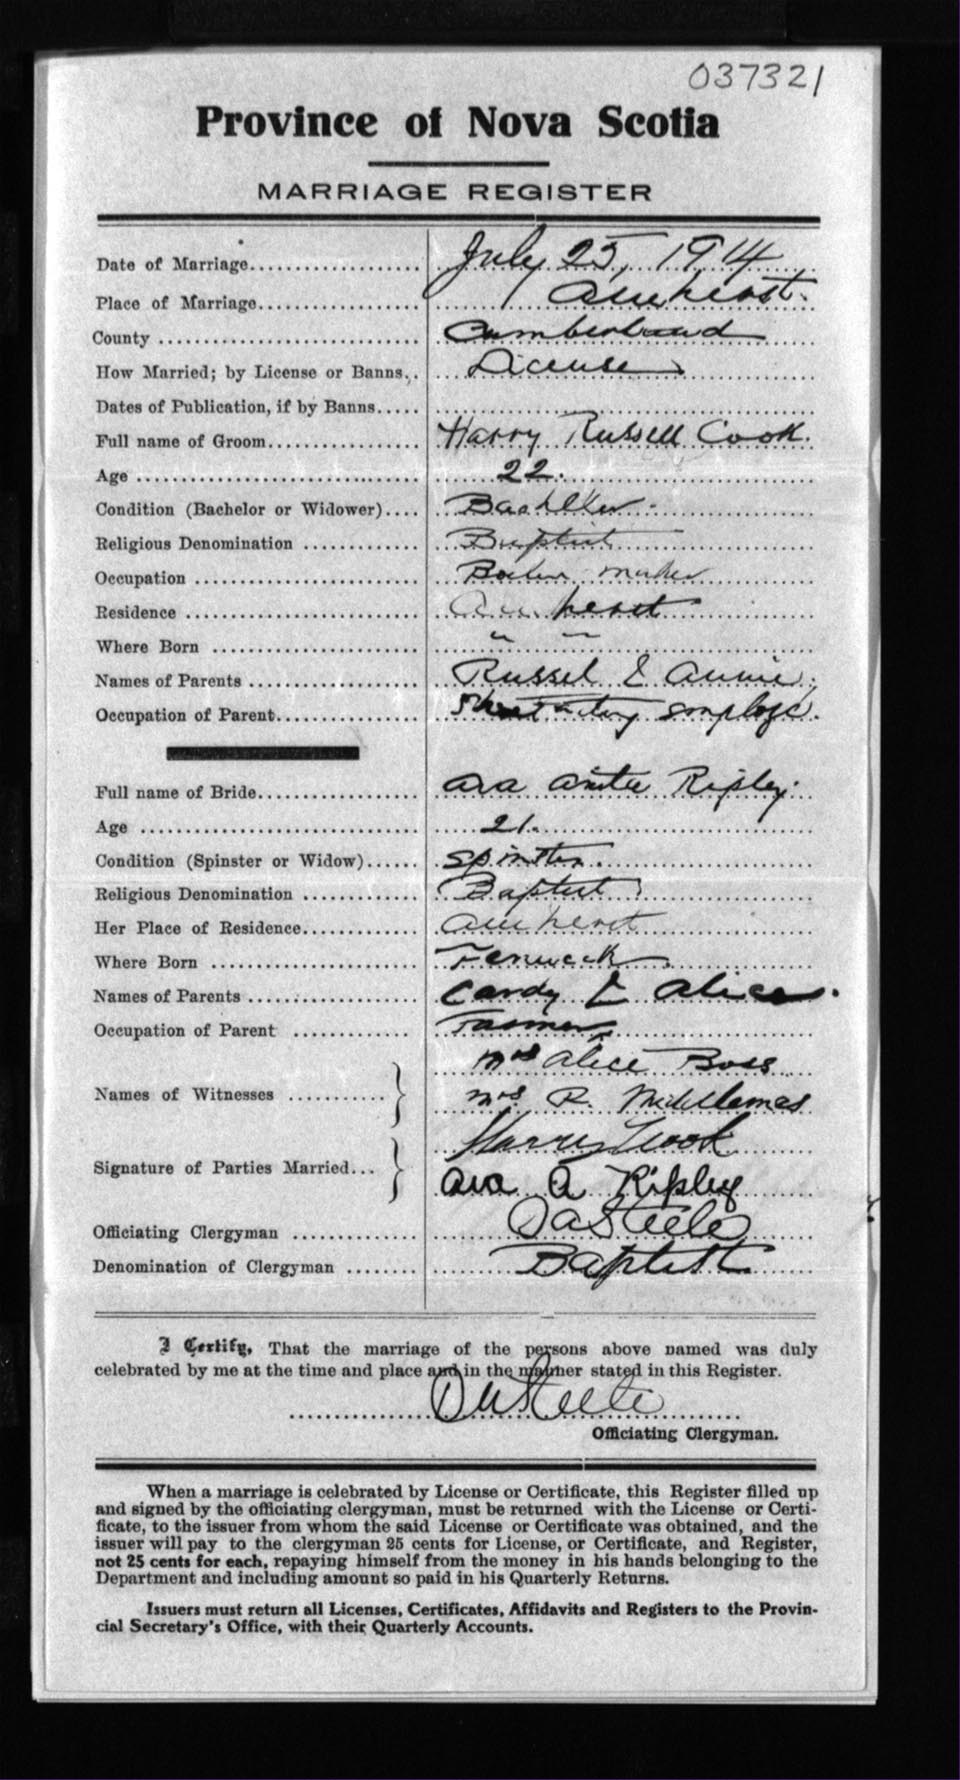 037321
Province of Nova Scotia
MARRIAGE REGISTER
Date of Marriage.................... July 25, 1914
Place of Marriage................... Amherst.
County ............................. Cumberland
How Married; by License or Banns.. License
Dates of Publication, if by Banns.....
Full name of Groom.................. Harry Russell Cook.
Age ................................ 22.
Condition (Bachelor or Widower).... Bachellor
Religious Denomination ............. Baptist
Occupation ......................... Boiler maker
Residence .......................... Amherst
Where Born ......................... " "
Names of Parents ................... Russel & Annie.
Occupation of Parent................
Full name of Bride.................. Ava Anita Ripley.
Age ................................ 21.
Condition (Spinster or Widow)...... Spinster.
Religious Denomination ............. Baptist
Her Place of Residence............. Amherst
Where Born ......................... Fenwick
Names of Parents ................... Cardy & Alice.
Occupation of Parent ............. Farmer
Mrs Alice Boss
Names of Witnesses ........... } Mrs R. Middlemas
Harry Cook
Signature of Parties Married... } Ava A Ripley
Officiating Clergyman ............. DaSteele
Denomination of Clergyman ........ Baptist
I Certify, That the marriage of the persons above named was duly
celebrated by me at the time and place and in the manner stated in this Register.
DaSteele
Officiating Clergyman.
When a marriage is celebrated by License or Certificate, this Register filled up
and signed by the officiating clergyman, must be returned with the License or Certi-
ficate, to the issuer from whom the said License or Certificate was obtained, and the
issuer will pay to the clergyman 25 cents for License, or Certificate, and Register,
not 25 cents for each, repaying himself from the money in his hands belonging to the
Department and including amount so paid in his Quarterly Returns.
Issuers must return all Licenses, Certificates, Affidavits and Registers to the Provin-
cial Secretary's Office, with their Quarterly Accounts.